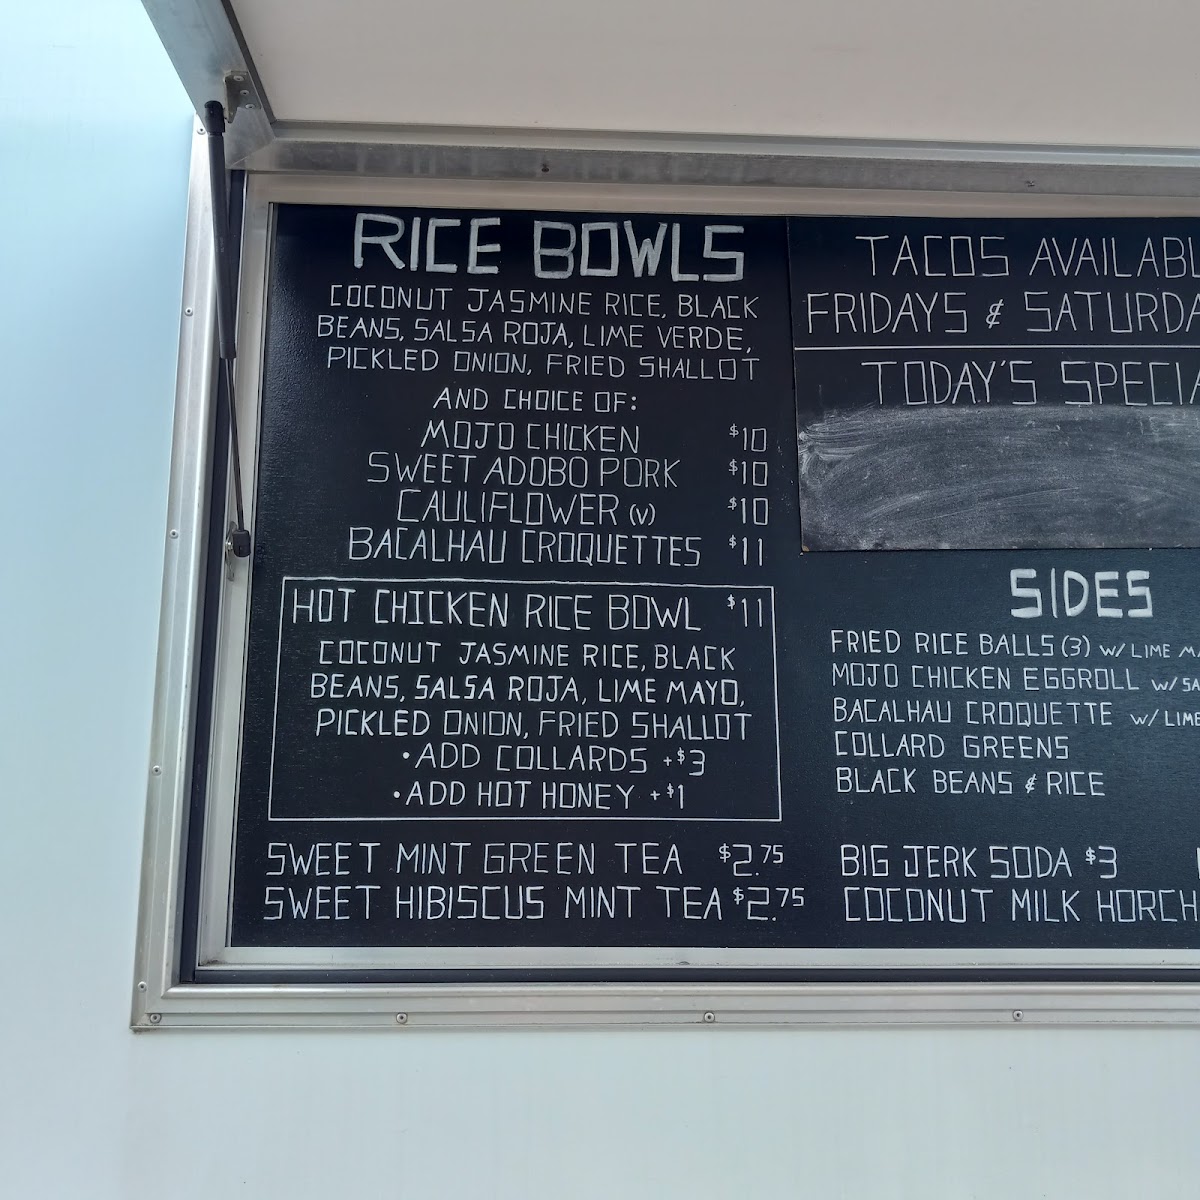 RICE BOWLS
COCONUT JASMINE RICE, BLACK
BEANS, SALSA ROJA, LIME VERDE,
PICKLED ONION, FRIED SHALLOT
AND CHOICE OF:
MOJO CHICKEN $10
SWEET ADOBO PORK $10
CAULIFLOWER (V) $10
BACALHAU CROQUETTES $11
HOT CHICKEN RICE BOWL $11
COCONUT JASMINE RICE, BLACK
BEANS, SALSA ROJA, LIME MAYO,
PICKLED ONION, FRIED SHALLOT
•ADD COLLARDS +$3
•ADD HOT HONEY +$1
SWEET MINT GREEN TEA $2.75
SWEET HIBISCUS MINT TEA $2.75
TACOS
FRIDAYS &
TODAY'S
SIDES
FRIED RICE BALLS (3) W/ LIME
MOJO CHICKEN EGGROLL W/
BACALHAU CROQUETTE W/ LIME
COLLARD GREENS
BLACK BEANS & RICE
BIG JERK SODA $3
COCONUT MILK